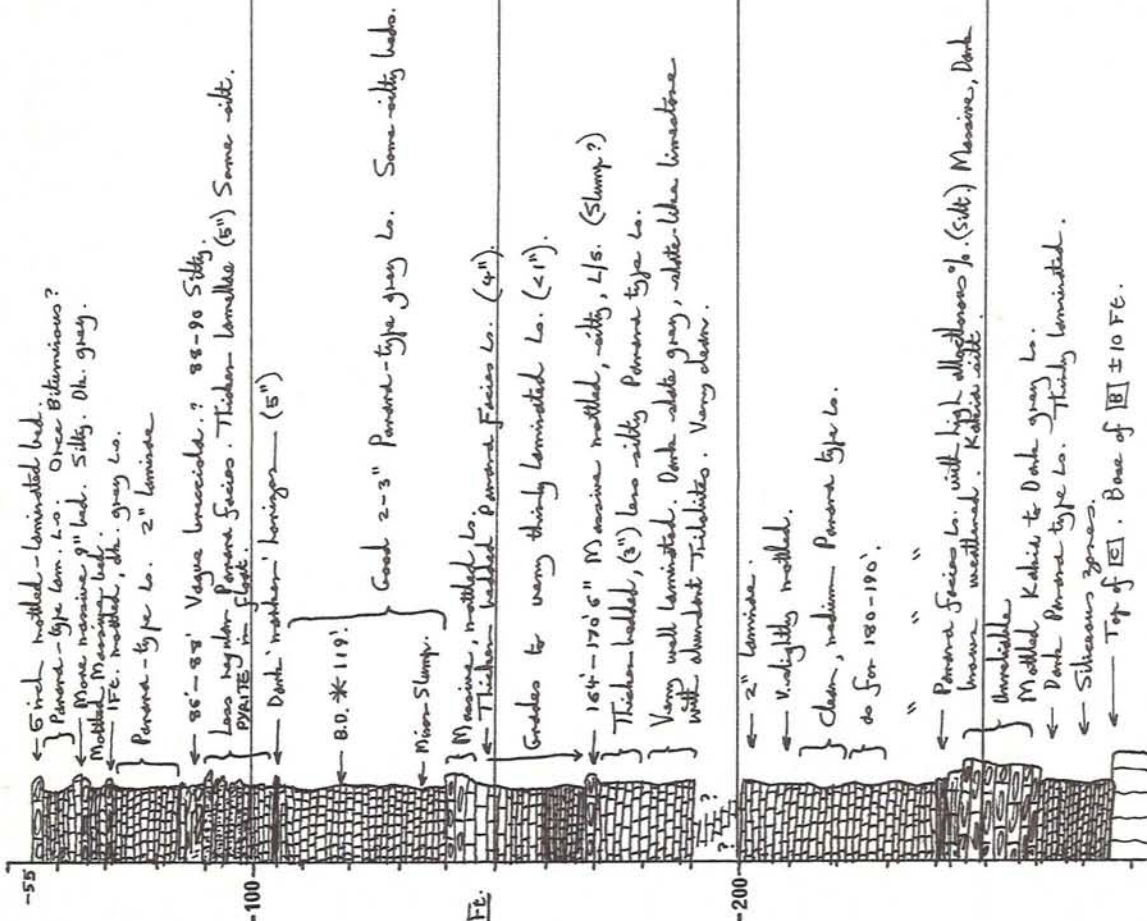 -55'
5 inch mottled-laminated bed.
Panara-type lam. Ls. Once Bituminous?
More massive 9" bed. Silty. Dk. grey.
Mottled Massive bed.
1Ft. mottled, dk. grey Ls.
Panara-type Ls. 2" laminae
86'-88' Vague brecciola.? 88-90 Silty.
Less regular Panara facies. Thicker lamellae (5") Some silt.
PYRITE in float.
-100
Dark 'marker' horizon — (5")
B.D. * 119'.
Good 2-3" Panara-type grey Ls. Some silty beds.
Minor Slump.
Massive, mottled Ls.
Thicker bedded Panara Facies Ls. (4").
Ft.
Grades to very thinly laminated Ls. (<1").
164'-170'6" Massive mottled, silty, L/s. (Slump?)
Thicker bedded, (3") less silty Panara type Ls.
Very well laminated. Dark slate grey, slate-like limestone
with abundant Trilobites. Very clean.
? ?
-200
2" laminae.
V. slightly mottled.
Clean, medium Panara type Ls.
as for 180-190'.
" " "
Panara facies Ls. with high %. (Silt.) Massive, Dark
brown weathered. silt.
Unreliable
Mottled to Dark grey Ls.
Dark Panara type Ls. Thinly laminated.
Siliceous zones.
Top of [C]. Base of [B] ±10 Ft.